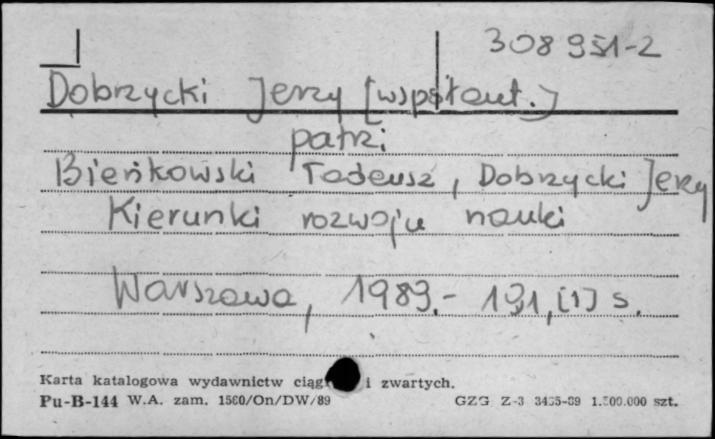 308 951-2
Dobrzycki Jerzy [współaut.]
patrz:
Bieńkowski Tadeusz, Dobrzycki Jerzy
Kierunki rozwoju nauki
Warszawa, 1989.- 191,[1] s.
Karta katalogowa wydawnictw i zwartych.
Pu-B-144 W.A. zam. 1560/On/DW/89 GZG Z-3 3435-89 1.500.000 szt.